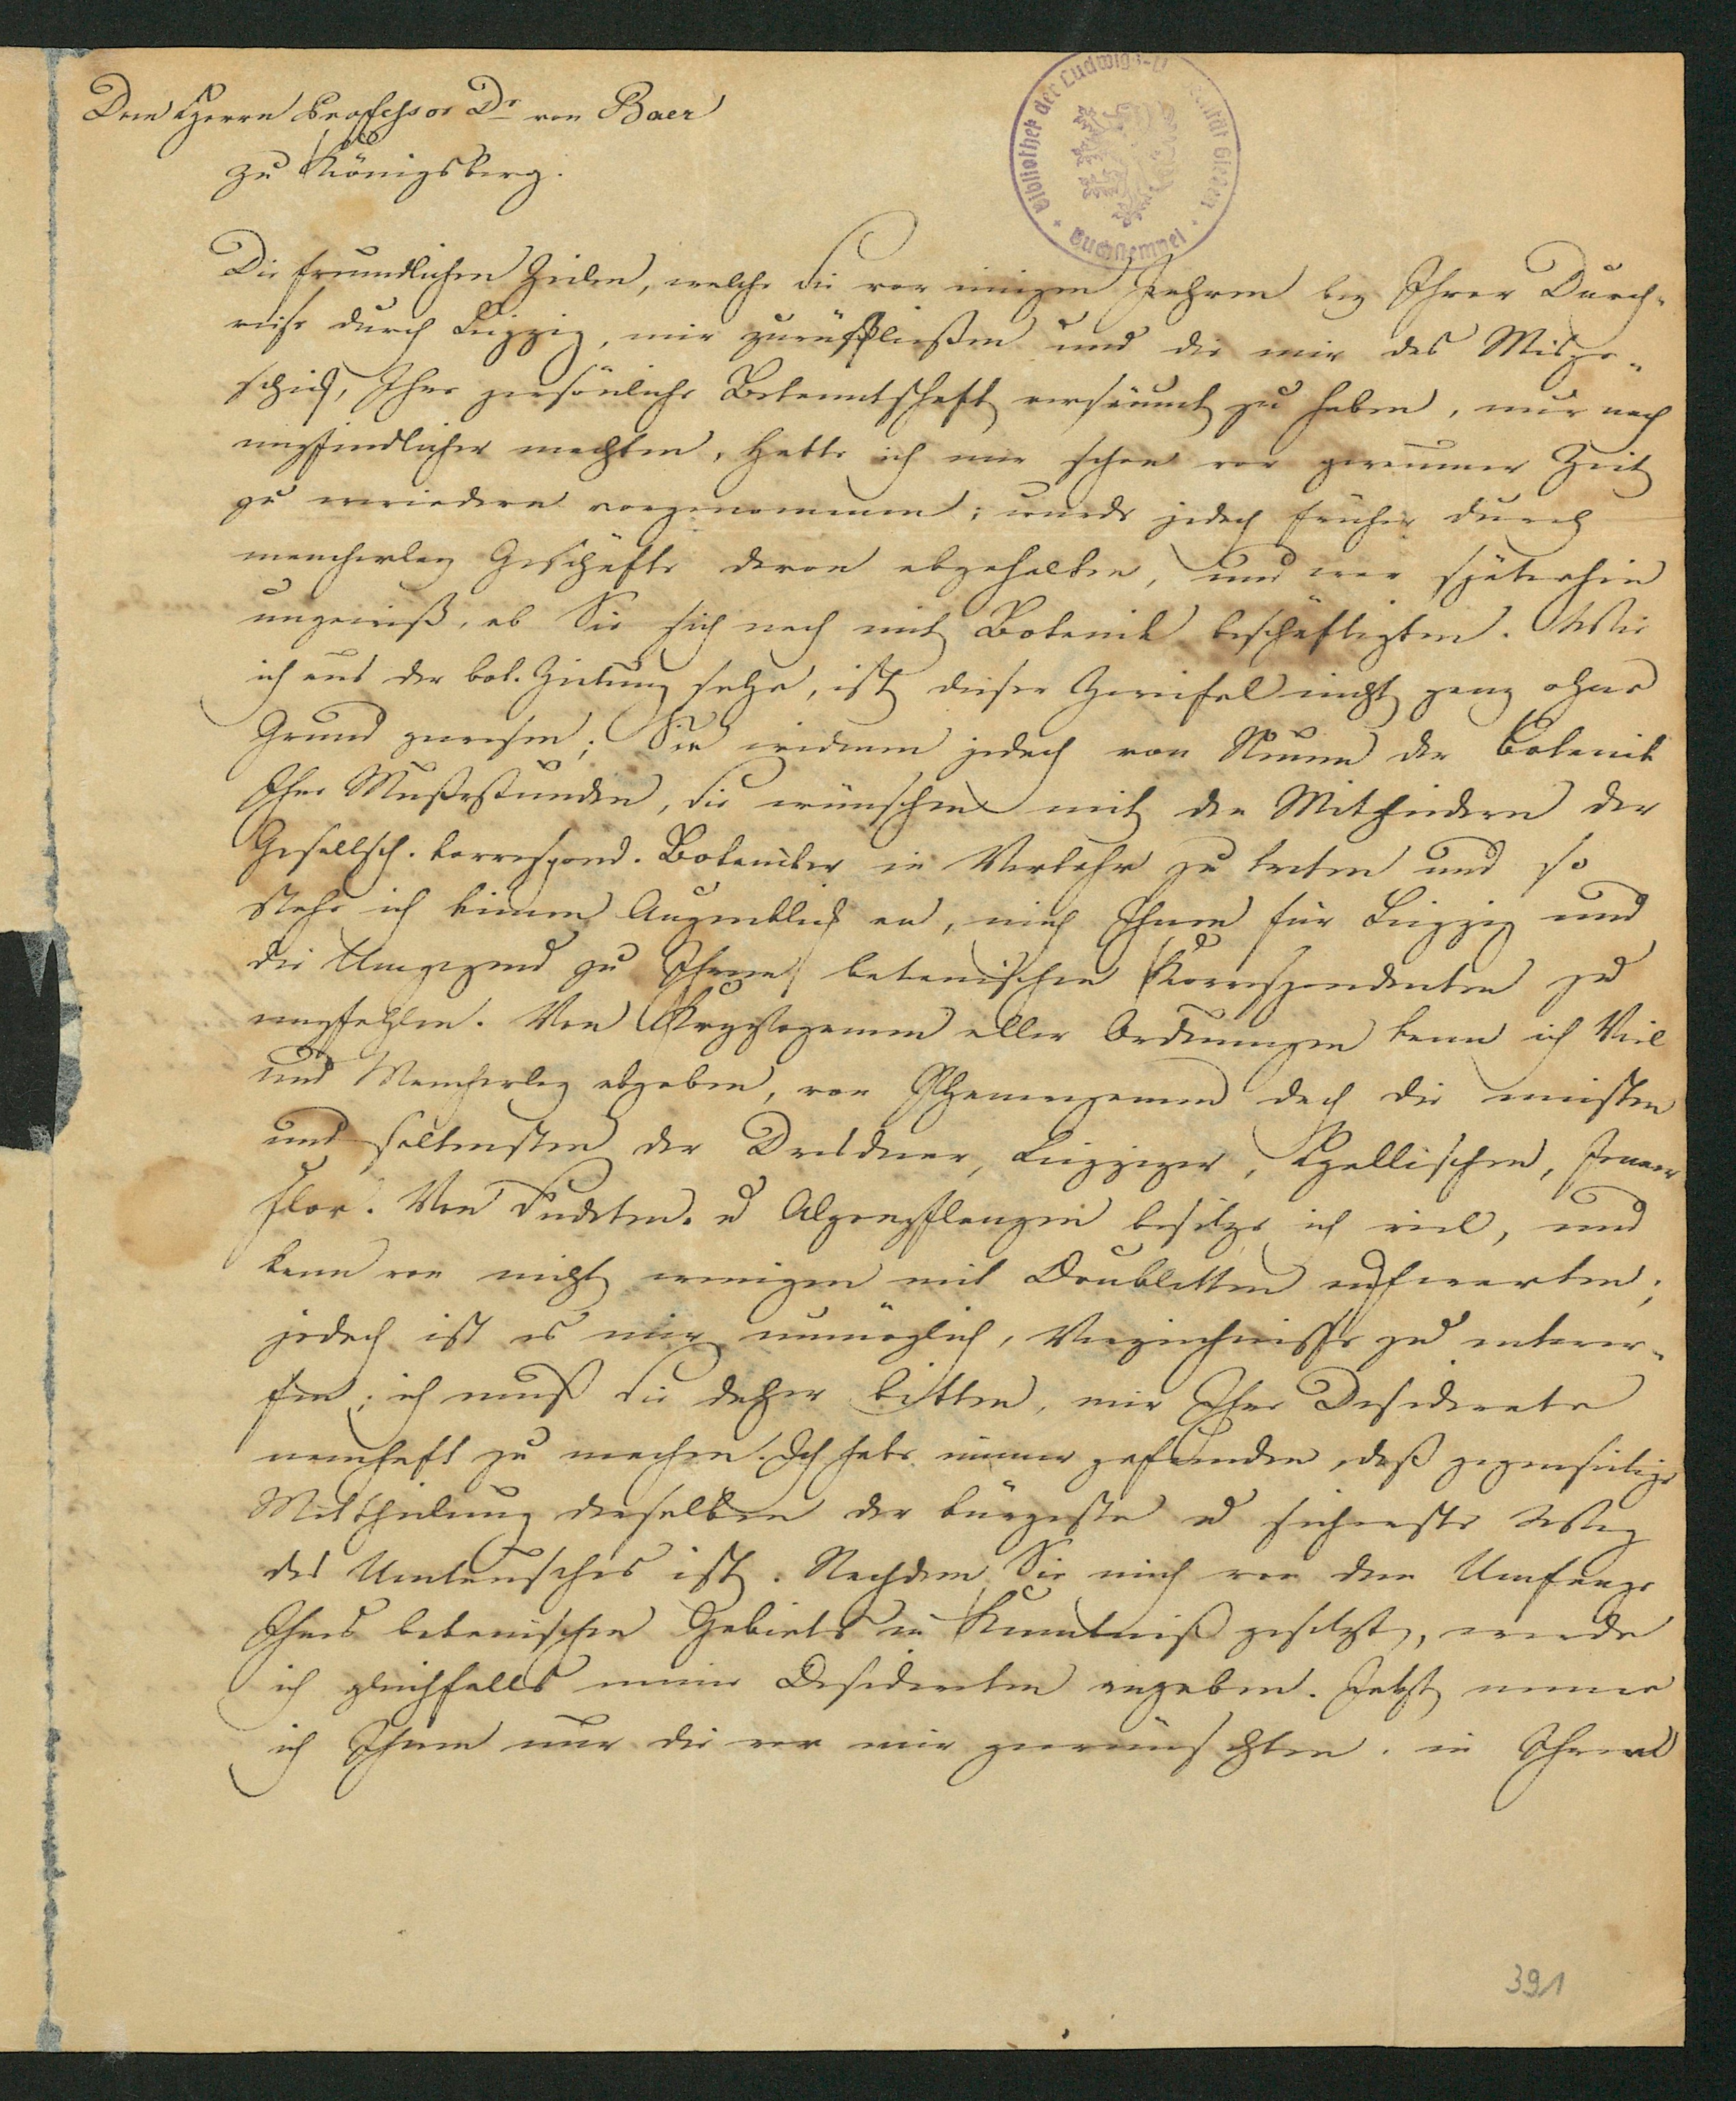 Dem Herrn Professor Dr von Baer
zu Königsberg.
Die freundlichen Zeilen, welche Sie vor einigen Jahren bey Ihrer Durch-
reise durch Leipzig, mir zurückließen und die mir das Misge-
schick, Ihre persönliche Bekanntschaft versäumt zu haben, nur noch
empfindlicher machten, hatte ich mir schon vor geraumer Zeit
zu erwiedern vorgenommen; wurde jedoch früher durch
mancherley Geschäfte davon abgehalten, und war späterhin
ungewiß, ob Sie sich noch mit Botanik beschäftigten. Wie
ich aus der bot. Zeitung sehe, ist dieser Zweifel nicht ganz ohne
Grund gewesen; Sie widmen jedoch von Neuem der Botanik
Ihre Mußestunden, Sie wünschen mit den Mitgliedern der
Gesellsch. korrespond. Botaniker in Verkehr zu treten und so
stehe ich keinen Augenblick an, mich Ihnen für Leipzig und
die Umgegend zu Ihrem botanischen Korrespondenten zu
empfehlen. Von Kryptogamen aller Ordnungen kann ich Viel
und Mancherley abgeben, von Phanerogamen doch die meisten
und seltensten der Dresdner, Leipziger, Hallischen, Jenaer
Flor. Von Sudeten- u Alpenpflanzen besitze ich viel, und
kann von nicht wenigen mit Doubletten aufwarten;
jedoch ist es mir unmöglich, Verzeichnisse zu entwer-
fen; ich muß Sie daher bitten, mir Ihre Desiderate
namhaft zu machen. Ich habe immer gefunden, daß gegenseitige
Mittheilung derselben der kürzeste u sicherste Weg
des Umtausches ist. Nachdem Sie mich von dem Umfange
Ihres botanischen Gebiets in Kenntniß gesetzt, werde
ich gleichfalls meine Desideraten angeben. Jetzt nenne
ich Ihnen nur die von mir gewünschten, in Ihrem
391
Bibliothek der Ludwigs-Universität Giessen
Buchstempel